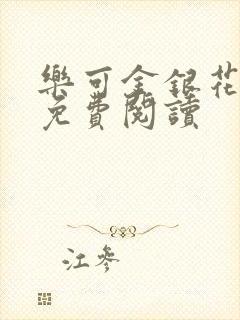 樂可金銀花
免費閱讀
江參